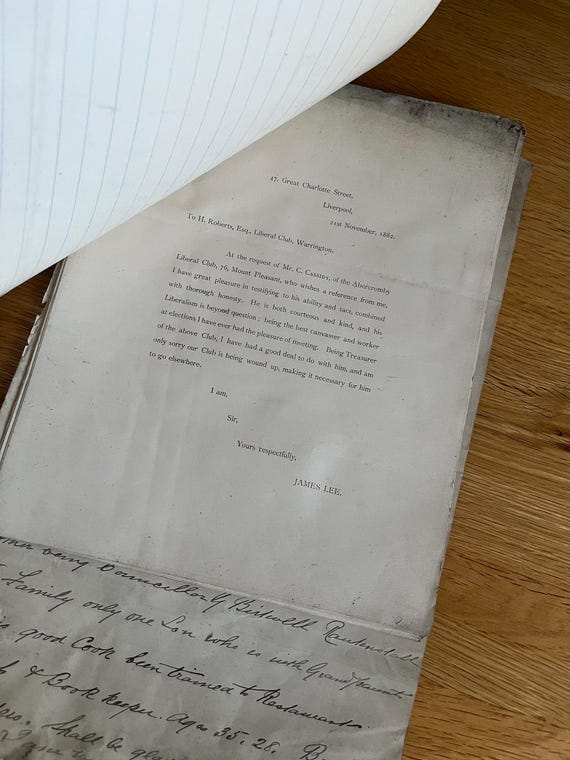 47, Great Charlotte Street,
Liverpool,
21st November, 1882.
To H. Roberts, Esq., Liberal Club, Warrington.
At the request of Mr. C. Cassidy, of the Abercromby
Liberal Club, 76, Mount Pleasant, who wishes a reference from me,
I have great pleasure in testifying to his ability and tact, combined
with thorough honesty. He is both courteous and kind, and his
Liberalism is beyond question; being the best canvasser and worker
at elections I have ever had the pleasure of meeting. Being Treasurer
of the above Club, I have had a good deal to do with him, and am
only sorry our Club is being wound up, making it necessary for him
to go elsewhere.
I am,
Sir,
Yours respectfully,
JAMES LEE.
being Councillor Birtwell
Family only one Son who is with Grand Parents
good Cook been trained to Restaurant
& Book keeper. Ages 35. 28.
Shall be